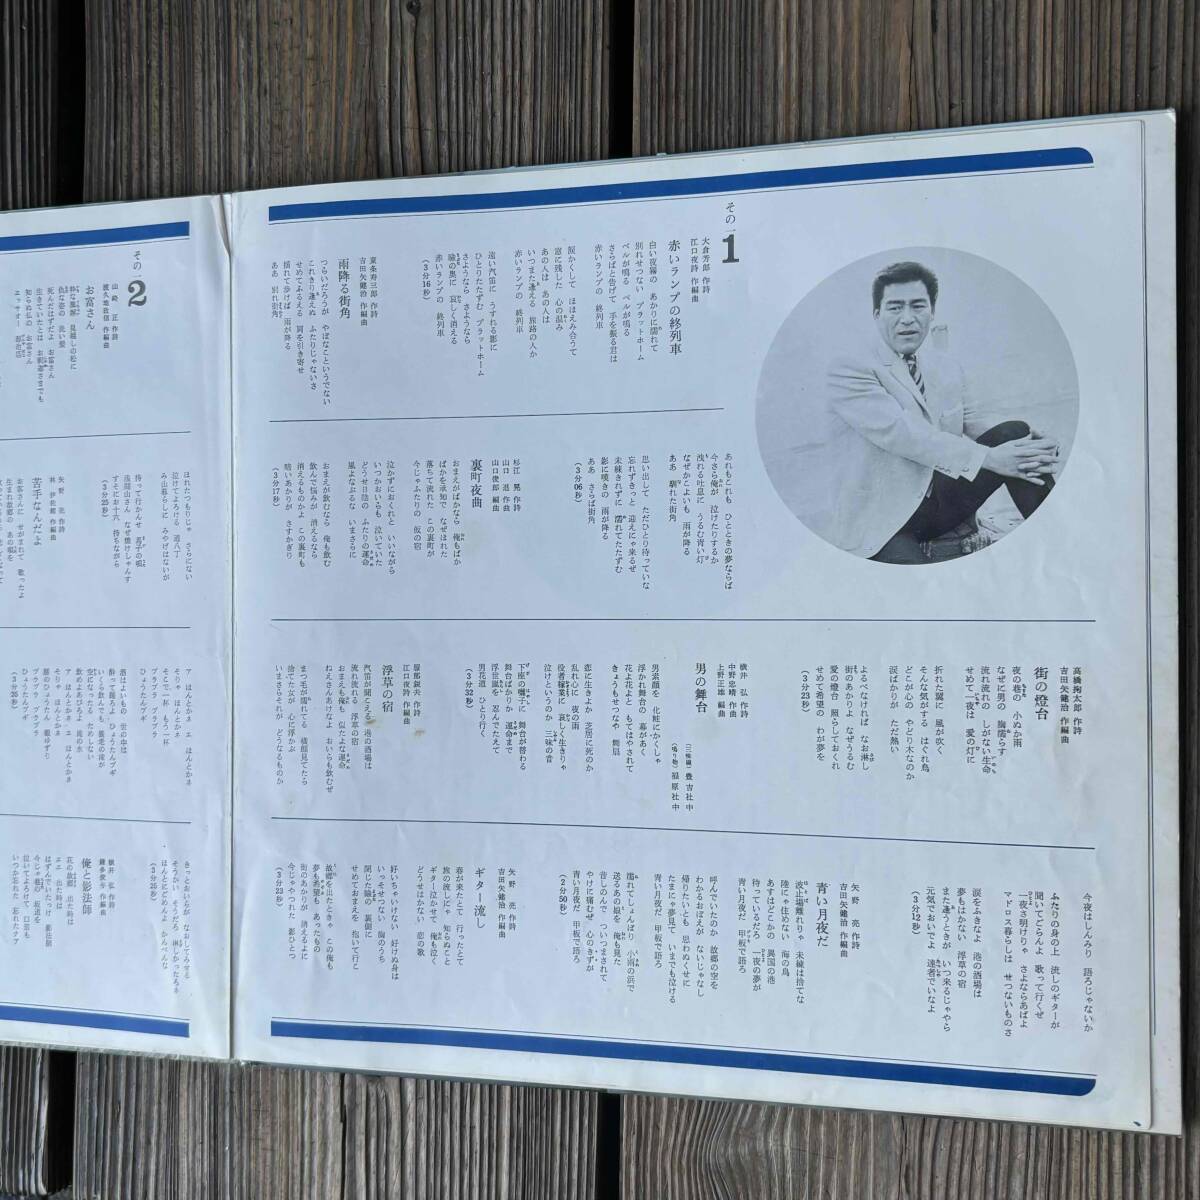 その一
1
大倉芳郎 作詩
江口夜詩 作編曲
赤いランプの終列車
白い夜霧の あかりに濡れて
別れせつない プラットホーム
ベルが鳴る ベルが鳴る
さらばと告げて 手を振る君は
赤いランプの 終列車
涙かくして ほほえみ合うて
窓に残した 心の温み
あの人は あの人は
いつまた逢える 旅路の人か
赤いランプの 終列車
遠い汽笛に うすれる影に
ひとりたたずむ プラットホーム
さようなら さようなら
瞼の奥に 哀しく消える
赤いランプの 終列車
(3分16秒)
東条寿三郎 作詩
吉田矢健治 作編曲
雨降る街角
つらいだろうが やぼなこというでない
これきり逢えぬ ふたりじゃないさ
せめてみえる 肩を引き寄せ
揺れて歩けば 雨が降る
ああ 別れ街角
あれもこれも ひとときの夢ならば
今さら俺が 泣けたりするか
洩れる吐息に うるむ青い灯
なぜかこよいも 雨が降る
ああ 馴れた街角
思い出して ただひとり待っていな
忘れずきっと 迎えにゃ来るぜ
未練きれずに 濡れてたたずむ
影に嘆きの 雨が降る
ああ さらば街角
(3分06秒)
杉江晃 作詩
山口進 作曲
山口俊郎 編曲
裏町夜曲
おまえがばかなら 俺もばか
ばかを承知で なぜほれた
落ちて流れた この裏町が
今じゃふたりの 仮の宿
泣かずにおくれと いいながら
いつかおいらも 泣いていた
どうせ日陰の ふたりの運命
風よなぶるな いまさらに
おまえが飲むなら 俺も飲む
飲んで悩が 消えるなら
消えるものかよ この裏町も
暗いあかりが さすかぎり
(3分17秒)
高橋掬太郎 作詩
吉田矢健治 作編曲
街の燈台
夜の巷の 小ぬか雨
なぜに男の 胸濡らす
流れ流れの しがない生命
せめて一夜は 愛の灯に
折れた翼に 風が吹く
そんな気がする はぐれ鳥
どこが心の やどり木なのか
涙ばかりが ただ熱い
よるべなければ なお淋し
街のあかりよ なぜうるむ
愛の燈台 照らしておくれ
せめて希望の わが夢を
(3分23秒)
横井弘 作詩
中野忠晴 作曲
上野正雄 編曲
男の舞台
(三味線) 豊吉社中
(鳴り物) 福原社中
男素顔を 化粧にかくしゃ
浮かれ舞台の 幕があく
花よ花よと もてはやされて
きょうもせつなや 舞扇
恋に生きよか 芝居に死のか
乱れ心に 夜の雨
役者稼業に 哀しく生きりゃ
泣けというのか 三味の音
下座の囃子に 舞台が替わる
舞台ばかりか 運命まで
浮世嵐を 忍んでたえて
男花道 ひとり行く
(3分32秒)
服部鋭夫 作詩
江口夜詩 作編曲
浮草の宿
汽笛が聞こえる 港の酒場は
流れ流れる 浮草の宿
おまえも俺も 似たよな運命
ねえさんあけなよ おいらも飲むぜ
まつ毛が濡れてる 横顔見てたら
捨てた女が 心に浮かぶ
いまさらそれが どうなるものか
今夜はしんみり 語ろじゃないか
ふたりの身の上 流しのギターが
聞いてごらんよ 歌って行くぜ
一夜さ明けりゃ さよならあばよ
マドロス暮らしは せつないものさ
涙をふきなよ 港の酒場は
夢もはかない 浮草の宿
また逢うときが いつ来るじゃやら
元気でおいでよ 達者でいなよ
(3分12秒)
矢野亮 作詩
吉田矢健治 作編曲
青い月夜だ
波止場離れりゃ 未練は捨てな
陸にゃ住めない 海の鳥
あすはどこかの 異国の港
待っているだろ 一夜の夢が
青い月夜だ 甲板で語ろ
呼んでいたのか 故郷の空を
わかるおぼえが ないじゃなし
帰りたいとも 思わぬくせに
たまにゃ夢見て いまでも泣ける
青い月夜だ 甲板で語ろ
濡れてしょんぼり 小雨の浜で
送るあの娘を 俺も見た
昔しのんで ついつまされて
やけに痛むぜ 心のきずが
青い月夜だ 甲板で語ろ
(2分50秒)
矢野亮 作詩
吉田矢健治 作編曲
ギター流し
春が来たとて 行ったとて
旅の流しにゃ 知らぬこと
ギター泣かせて 俺も泣く
どうせはかない 恋の歌
好いちゃいけない 好けぬ身は
いっそせつない 胸のうち
閉じた瞼の 裏側に
せめておまえを 抱いて行こ
故郷を出たときゃ この俺も
夢も希望も あったもの
街のあかりが 消えるよに
今じゃやつれた 影ひとつ
(3分23秒)
その一
2
山崎正 作詩
渡久地政信 作編曲
お富さん
粋な黒塀 見越しの松に
仇な姿の 洗い髪
死んだはずだよ お富さん
生きていたとは お釈迦さまでも
知らぬ仏の お富さん
エッサオー 源治店
ほれたつもりじゃ さらにない
泣けてよろける 道八丁
みやげはないが
待って行かんせ 若子の唄
浅間山さん なぜ焼けしゃんす
すそにお十六 待ちながら
(3分25秒)
矢野亮 作詩
林伊佐緒 作編曲
苦手なんだよ
お客さんに せがまれて 歌ったよ
生まれ故郷の あの唄を
ア ほんとかネ エ ほんとかネ
そりゃ ほんとかネ
そこで一杯 もう一杯
ブラブラ ブラブラ
ひょうたんブギ
酒はよいもの 世の中は
酔って踊ろよ ひょうたんブギ
いくら飲んでも 養老の滝が
空になった ためしない
飲めよあびろよ 滝の水
ア ほんとかネ エ ほんとかネ
そりゃ ほんとかネ
腰のひょうたん 親ゆずり
ブラブラ ブラブラ
ひょうたんブギ
(3分25秒)
きっとおいらが なおしてみせる
そうかい そうだろ 淋しかったろネ
ほんとにどめんよ かんべんな
(3分25秒)
横井弘 作詩
鎌多俊与 作編曲
俺と影法師
花の故郷 出た時は
エエ 出た時は
はずんでいたっけ 影法師
今じゃ巷の 坂道を
泣いてよろけて 口笛も
いつか忘れた 忘れたナア